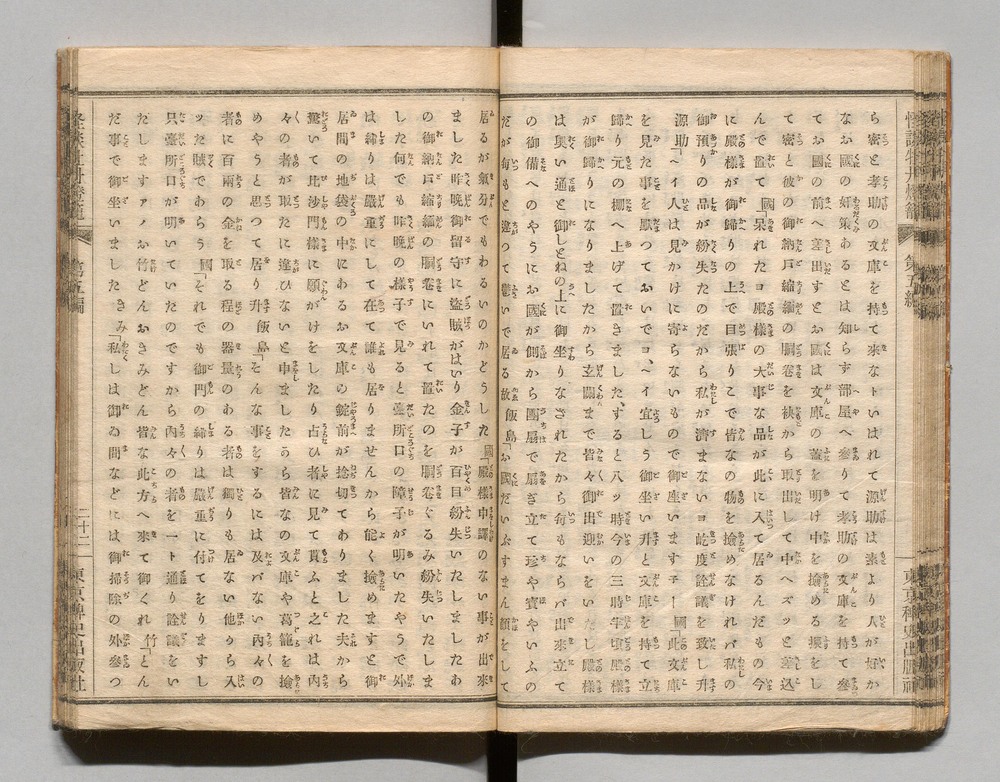 ら密と孝助の文庫を持て來なトいはれて源助は素より人が好か
なお國の奸策あるとは知らず部屋へ參りて孝助の文庫を持て參
てお國の前へ差出すとお國は文庫の蓋を明け中を撿める振をし
て密と彼の御納戸縮緬の胴卷を袂から取出して中へズッと差込
んで置いて國「呆れたヨ殿様の大事な品が此に入て居るんだもの今
に殿様が御歸りの上で目張りこで皆なの物を撿めなければバ私の
御預りの品が紛失たのだから私が濟まないヨ屹度詮議を致し升
源助「ヘイ人は見かけに寄らないもので御座いますチー國「此文庫
を見た事を默つておいでヨ、ヘイ宜しう御坐い升と文庫を持て立
歸り元の棚へ上げて置きました、すると八ッ時今の三時半頃殿様
が御歸りになりましたから玄關まで皆々御出迎いをいたし殿様
は奥い通と御しとねの上に御坐りなされたから旬つもならバ出來立て
の御備へのやうにお國が側から團扇で扇ぎ立て珍や寳やいふの
だが旬も違つて鬱いで居る故飯島「お國だいぶすまん顔をして
居るが氣分でもわるいのかどうした國「殿様申譯のない事が出來
ました昨晩御留守に盗賊がはいり金子が百目紛失いたしましたわ
の御納戸縮緬の胴卷にいれて置たのを胴卷ぐるみ紛失いたしま
した何でも昨晩の様子で見ると臺所口の障子が明いたやうで外
は締りは嚴重にして在て誰も居りませんから能く撿めますと御
居間の地袋の中にあるお文庫の錠前が捻切てありました夫から
驚いて毘沙門様に願がけをしたり占ひ者に見て貰ふと之れは内
々の者が取たに違ひないと申ましたから皆なの文庫や葛籠を撿
めやうと思つて居り升飯島「そんな事をするには及バない内々の
者に百兩の金を取る程の器量のある者は獨りも居ない他から入
ッた賊であらう國「それでも御門の締りは嚴重に付てをりますし
只臺所口が明いていたのですから内々の者を一ト通り詮議をい
たしますァノお竹どんおきみどん皆な此方へ來て御くれ竹「とん
だ事で御坐いましたきみ「私しは御ゐ間などには御掃除の外參つ
第五編
二十二
東京稗史出版社